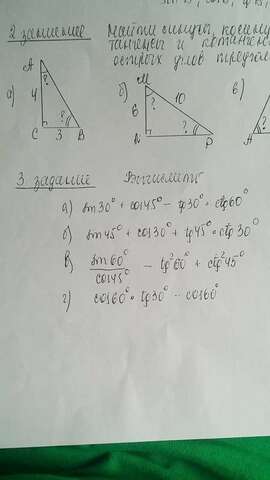 2 задание Найти синусы, косину
тангенсы и котанген
острых углов треугол
а)
A
?
4
?
C 3 B
б)
M
?
6
10
?
P
в)
?
A
3. задание Вычислить
а) sin30° + cos45° - tg30° • ctg60°
б) sin45° + cos30° + tg45° • ctg30°
в) sin60° / cos45° - tg²60° + ctg²45°
г) cos60° • tg30° - cos60°